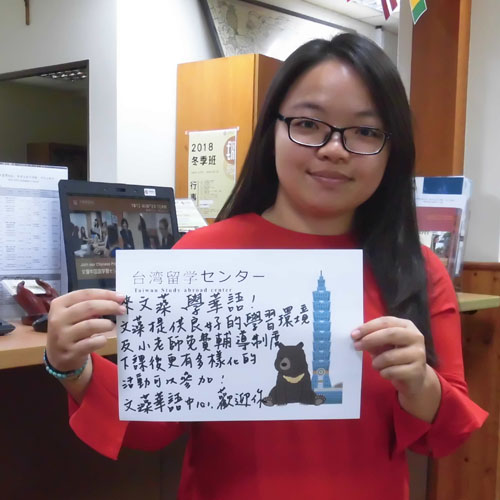 2018
冬季班
台湾留学センター
Taiwan Study abroad center
来文藻、學華語!
文藻提供良好的學習環境
及小老師免費輔導制度
下課後更有多樣化的
活動可以參加!
文藻華語中心、歡迎你